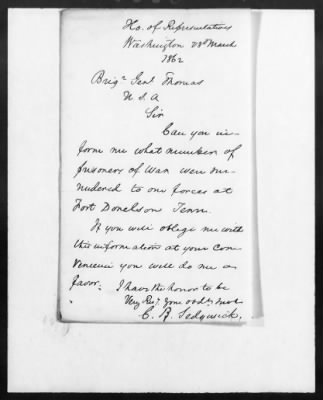 Ho. of Representatives
Washington 28th March
1862
Brigr Genl Thomas
U S A
Sir
Can you in-
form me what number of
prisoners of War were sur-
rendered to our forces at
Fort Donelson Tenn.
If you will oblige me with
this information at your con-
venience you will do me a
favor. I have the honor to be
Very Resp. your obdt Servt
C. B. Sedgwick.